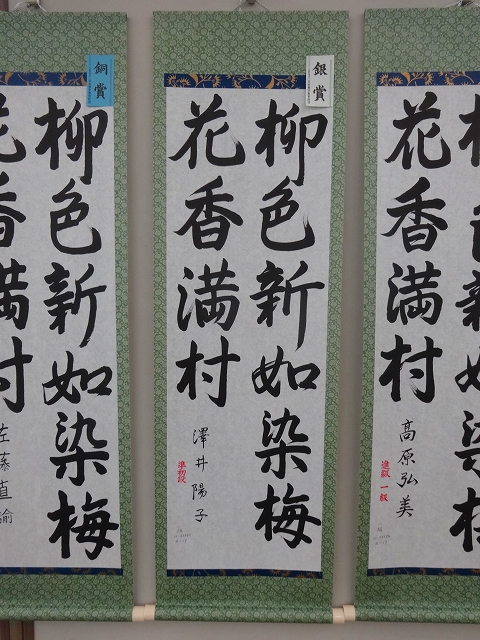 銅賞
柳色新如染梅
花香満村
左藤直諭
銀賞
柳色新如染梅
花香満村
澤井陽子
準初段
花香満村
高原弘美
進級 一級